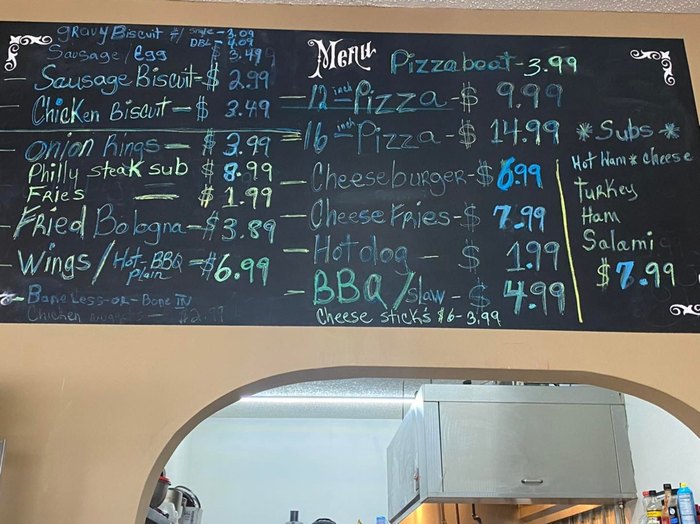 gravy Biscuit w/ Single - 3.09
DBL - 4.09
Sausage/Egg $ 3.49
Sausage Biscuit - $ 2.99
Chicken Biscuit - $ 3.49
Onion Rings - $ 3.99
Philly steak sub $ 8.99
Fries - $ 1.99
Fried Bologna - $ 3.89
Wings / Hot - BBQ - $6.99
Plain
Boneless - or - Bone IN
Chicken nuggets - $2.99
Menu
Pizza boat - 3.99
12 inch Pizza - $ 9.99
16 inch Pizza - $ 14.99
Cheeseburger - $ 6.99
Cheese Fries - $ 7.99
Hot dog - $ 1.99
BBQ /slaw - $ 4.99
Cheese sticks $6 - 3.99
*Subs*
Hot Ham * cheese
Turkey
Ham
Salami
$7.99